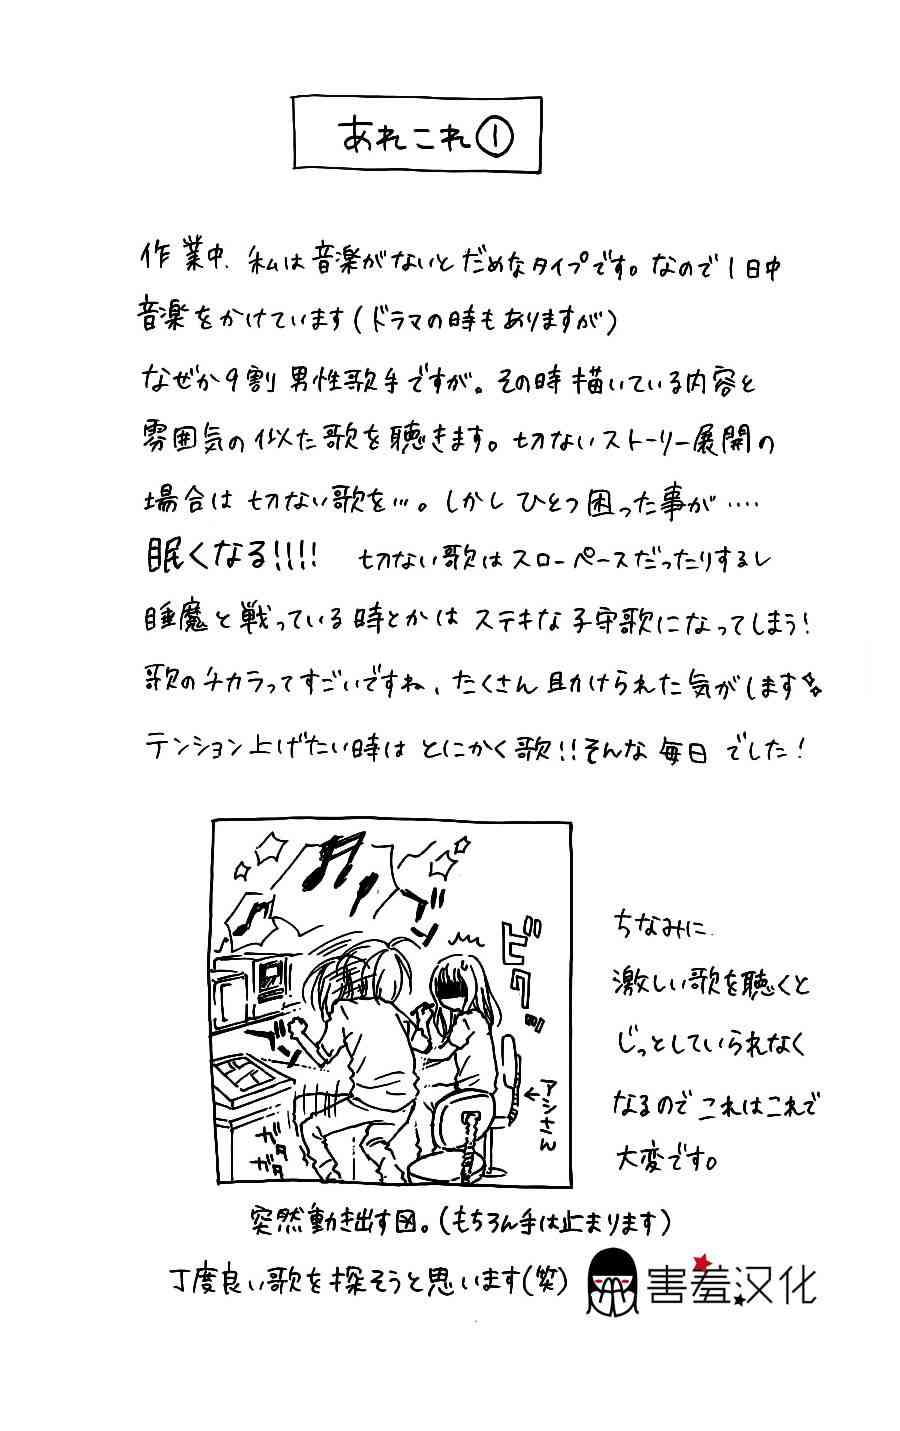 あれこれ①
作業中、私は音楽がないとだめなタイプです。なので1日中
音楽をかけています(ドラマの時もありますが)
なぜか9割男性歌手ですが。その時描いている内容と
雰囲気の似た歌を聴きます。切ないストーリー展開の
場合は切ない歌を…。しかしひとつ困った事が‥‥
眠くなる!!!! 切ない歌はスローペースだったりするし
睡魔と戦っている時とかはステキな子守歌になってしまう!
歌のチカラってすごいですね、たくさん助けられた気がします
テンション上げたい時はとにかく歌!!そんな毎日でした!
ブンッ
ビクッ
ブンッ
ガタ
ガタ
アシさん
ちなみに、
激しい歌を聴くと
じっとしていられなく
なるのでこれはこれで
大変です。
突然動き出す図。(もちろん手は止まります)
丁度良い歌を探そうと思います(笑)
害羞汉化